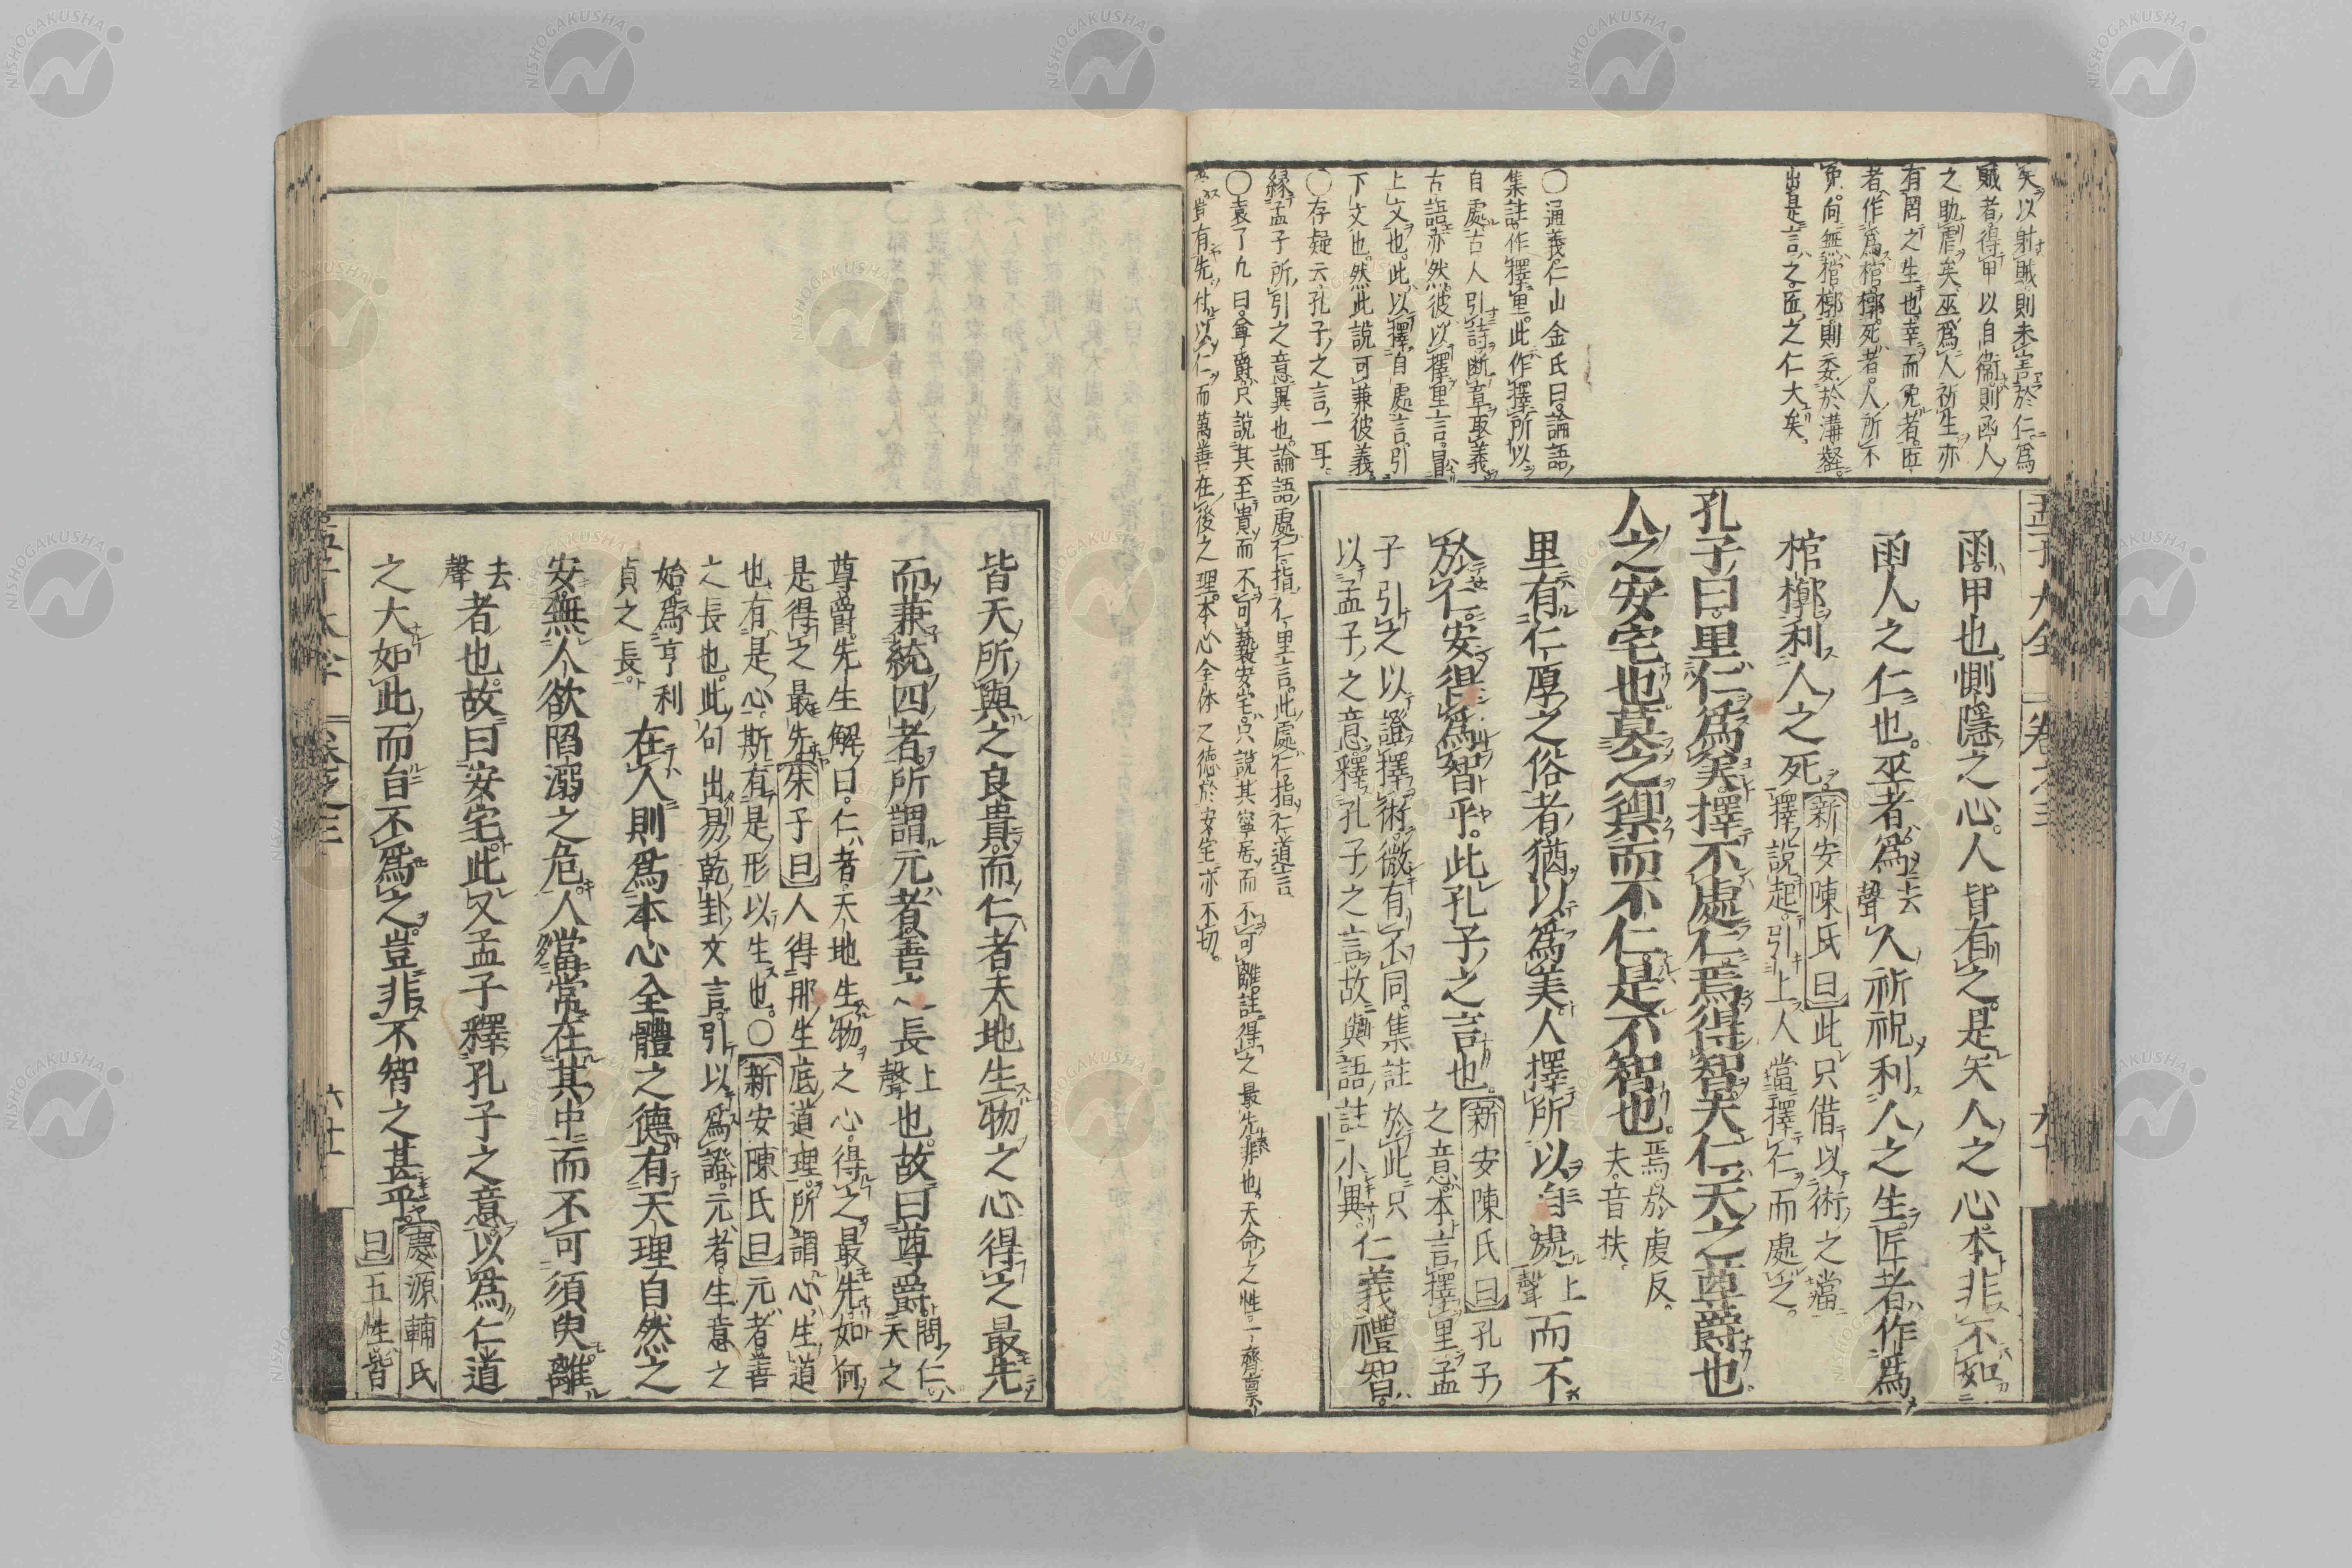 矣以射賊則未害於仁爲
賊者得甲以自衞則函人
之助虐矣巫爲人祈生亦
有罔之生也幸而免者匠
者作爲棺槨死者人所不
免向無棺槨則委於溝壑
出是言之匠之仁大矣
〇通義仁山金氏曰論語
集註作擇里此作擇所以
自處古人引詩断章取義
古語亦然彼以擇里言冒
上文也此以擇自處言引
下文也然此說可兼彼義
〇存疑云孔子之言一耳
縁孟子所引之意異也論語處仁指仁里言此處仁指仁道言
〇袁了凡曰尊爵只說其至貴而不可褻安宅只說其寧居而不可離註得之最先非也天命之性一齊稟
豈有先付以仁而萬善在後之理本心全体之德於安宅亦不切
孟子大全 卷之三
函甲也惻隱之心人皆有之是矢人之心本非不如
函人之仁也巫者爲去聲人祈祝利人之生匠者作爲
棺槨利人之死新安陳氏曰此只借以術之當
擇說起引上人當擇仁而處之
孔子曰里仁爲美擇不處仁焉得智夫仁天之尊爵也
人之安宅也莫之禦而不仁是不智也焉於虔反
夫音扶
里有仁厚之俗者猶以爲美人擇所以自處上聲而不
於仁安得爲智乎此孔子之言也新安陳氏曰孔子
之意本言擇里孟
子引之以證擇術微有不同集註於此只
以孟子之意釋孔子之言故與語註小異仁義禮智
皆天所與之良貴而仁者天地生物之心得之最先
而兼統四者所謂元者善之長上聲也故曰尊爵問仁
天之
尊爵先生解曰仁者天地生物之心得之最先如何
是得之最先朱子曰人得那生底道理所謂心生道
也有是心斯有是形以生也〇新安陳氏曰元者善
之長也此句出易乾卦文言引以爲證元者生意之
始爲亨利
貞之長在人則爲本心全體之德有天理自然之
安無人欲陷溺之危人當常在其中而不可須臾離
去聲者也故曰安宅此又孟子釋孔子之意以爲仁道
之大如此而自不爲之豈非不智之甚乎慶源輔氏
曰五性皆